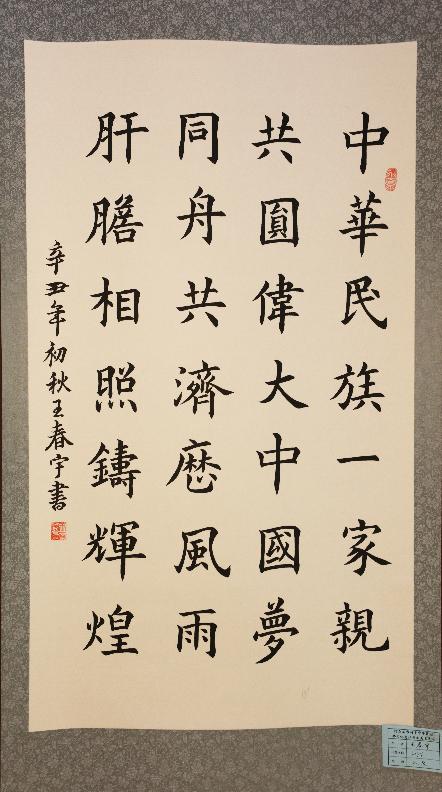 中華民族一家親
共圓偉大中國夢
同舟共濟歷風雨
肝膽相照鑄輝煌
辛丑年初秋王春宇書